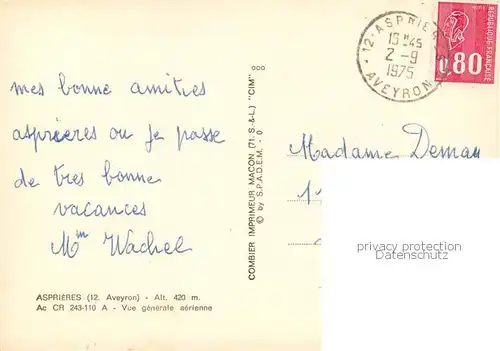 mes bonne amities
asprieres ou je passe
de tres bonne
vacances
Mm Wachel
ASPRIÈRES (12. Aveyron) - Alt. 420 m.
Ac CR 243-110 A - Vue générale aérienne
COMBIER IMPRIMEUR MACON (71. S.-&-L.) "CIM"
© by S.P.A.D.E.M. - 0
12 - ASPRIÈRES
15H45
2-9
1975
AVEYRON
REPUBLIQUE FRANÇAISE
0,80
Madame Demay
privacy protection
Datenschutz